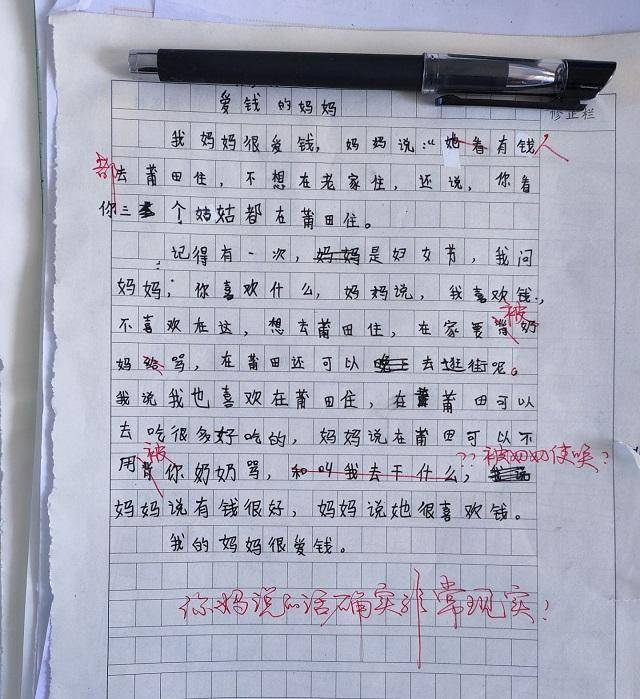 爱钱的妈妈
修正栏
我妈妈很爱钱，妈妈说：“她看有钱人
都去莆田住，不想在老家住，还说，你看
你三个姑姑都在莆田住。
记得有一次，妈妈是妇女节，我问
妈妈；你喜欢什么，妈妈说，我喜欢钱，
不喜欢在这，想去莆田住，在家要被奶
妈骂，在莆田还可以去逛街呢。
我说我也喜欢在莆田住，在莆田可以
去吃很多好吃的，妈妈说在莆田可以不
用被你奶奶骂，和叫我去干什么，?? 被奶奶使唤？
妈妈说有钱很好，妈妈说她很喜欢钱。
我的妈妈很爱钱。
你妈说的话确实非常现实！